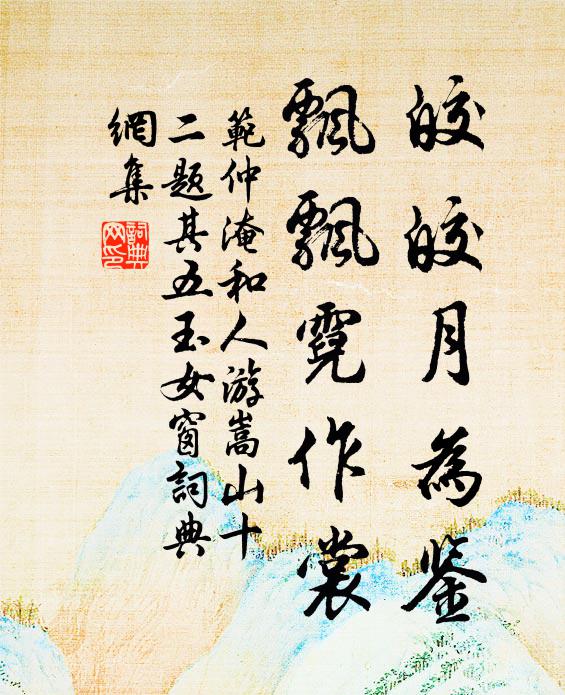 皎皎月為鉴
飄飄霓作裳
範仲淹和人游嵩山十
二題其五玉女窗詞典
網集
詞典
网印